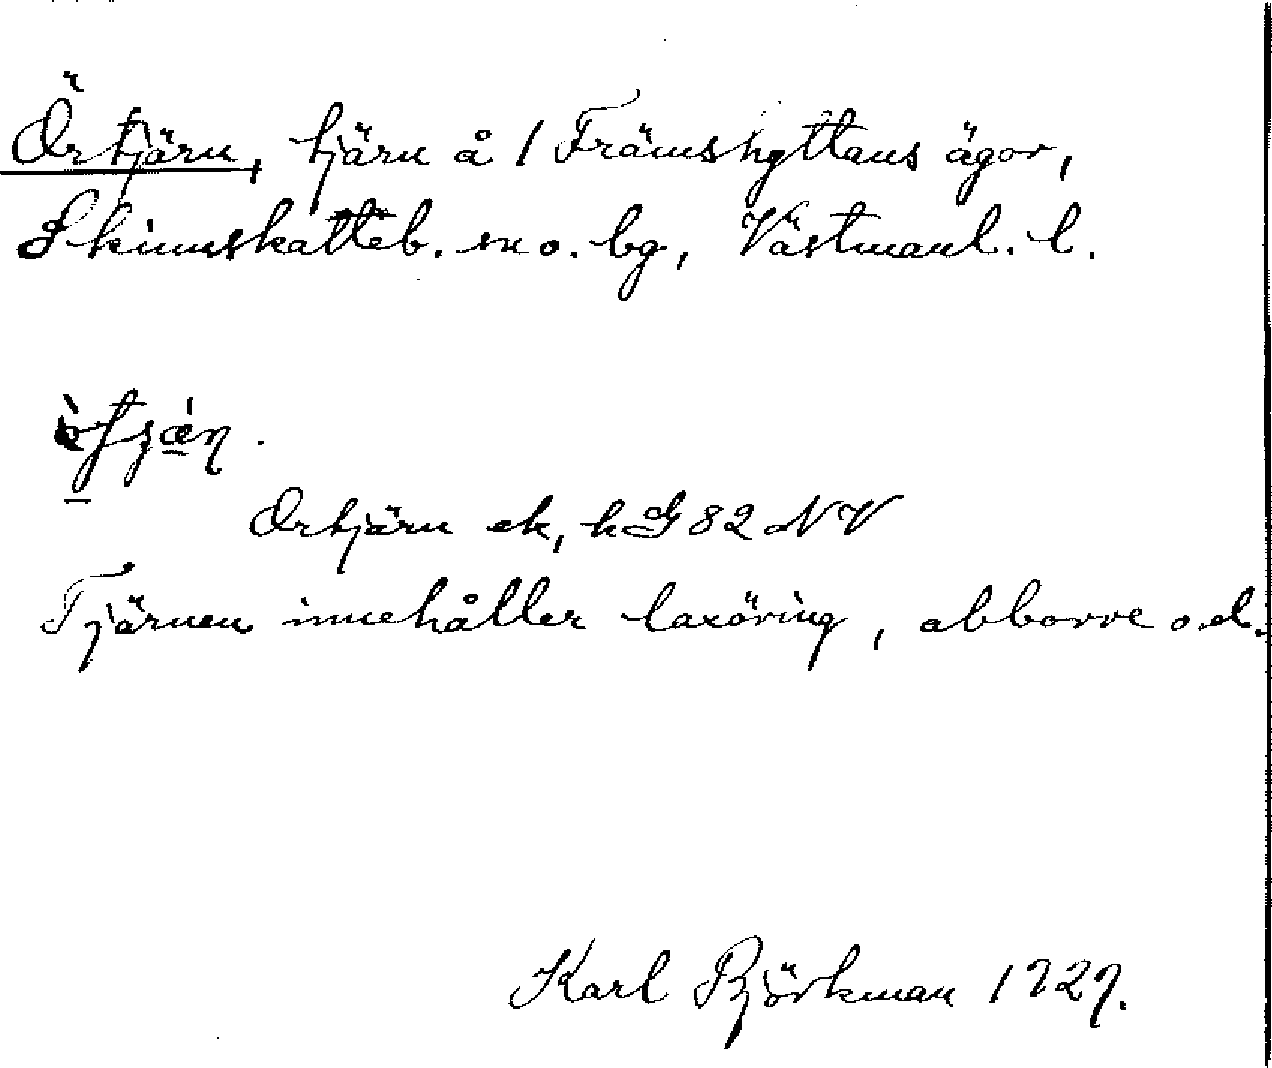 Örtjärn, tjärn å / Främshyttans ägor,
Skinnskatteb. sn o. bg, Västmanl. l.
Örtjärn ek, hG 82 NV
Tjärnen innehåller laxöring, abborre o.d.
Karl Björkman 1927.